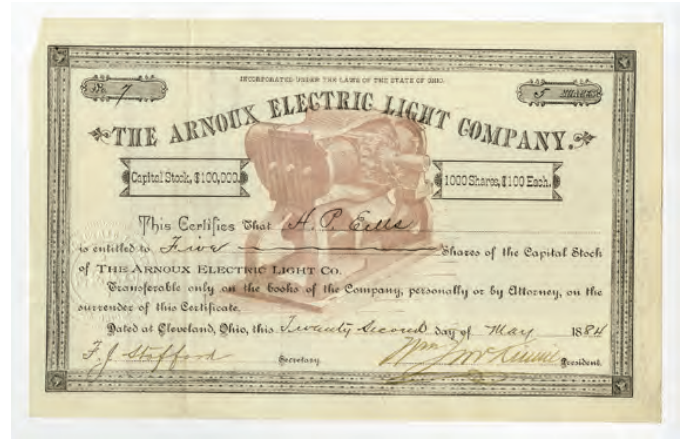 INCORPORATED UNDER THE LAWS OF THE STATE OF OHIO.
No. 7
5 SHARES
THE ARNOUX ELECTRIC LIGHT COMPANY.
Capital Stock, $100,000.
1000 Shares, $100 Each.
This Certifies That H. P. Eells
is entitled to Five Shares of the Capital Stock
of THE ARNOUX ELECTRIC LIGHT CO.
Transferable only on the books of the Company, personally or by Attorney, on the
surrender of this Certificate.
Dated at Cleveland, Ohio, this Twenty Second day of May 1884
F. J. Stafford Secretary. Wm. President.